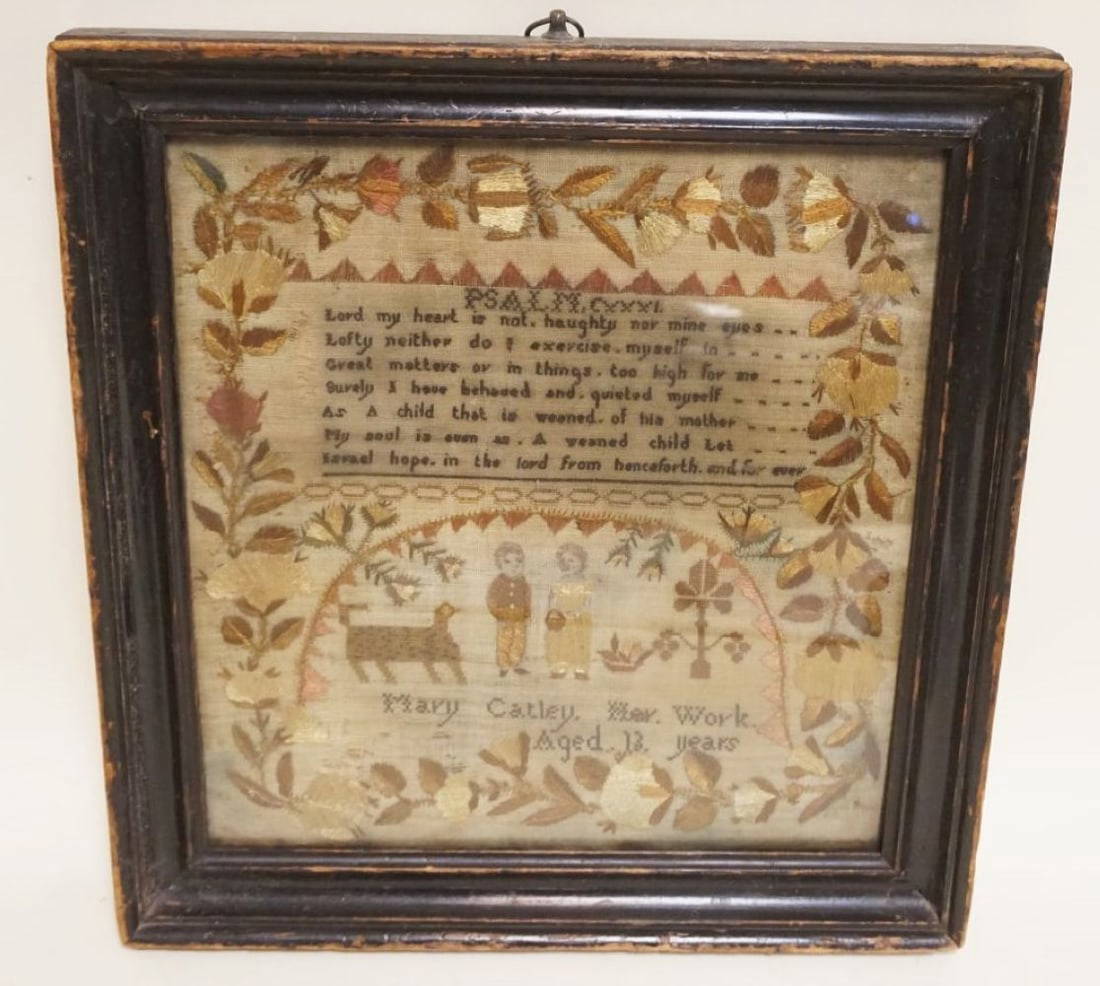 PSALM. Cxxxi.
Lord my heart is not. haughty nor mine eyes
Lofty neither do I exercise. myself in
Great matters or in things. too high for me
Surely I have behaved and. quieted myself
As A child that is weaned. of his mother
My soul is even as. A weaned child Let
Israel hope. in the lord from henceforth. and for ever
Mary Catley. Her. Work.
Aged. 13. years